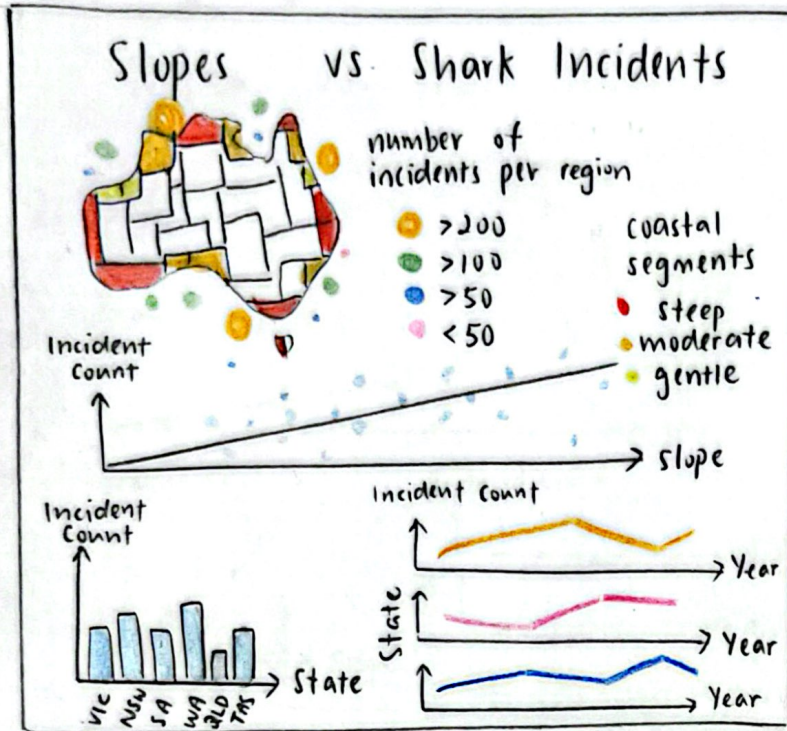 Slopes vs Shark Incidents
number of
incidents per region
>200
>100
>50
<50
coastal
segments
steep
moderate
gentle
Incident
Count
slope
Incident
Count
VIC
NSW
SA
WA
QLD
TAS
State
Incident Count
Year
State
Year
Year